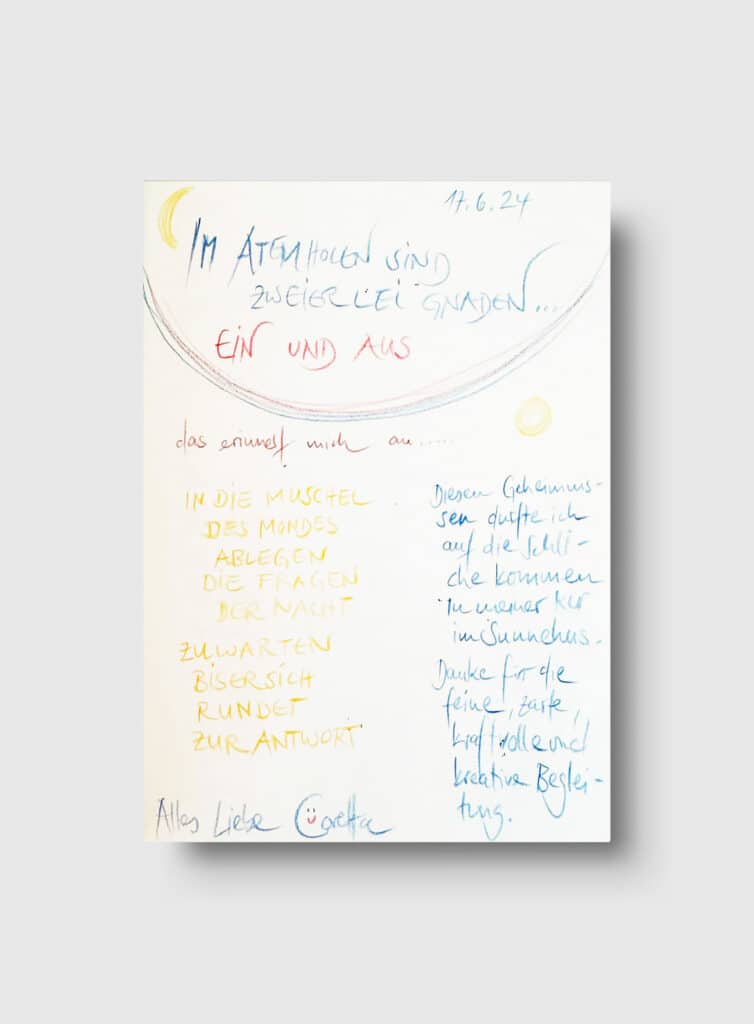 17.6.24
IM ATEMHOLEN SIND
ZWEIERLEI GNADEN...
EIN UND AUS
das erinnert mich an.....
IN DIE MUSCHEL
DES MONDES
ABLEGEN
DIE FRAGEN
DER NACHT
ZUWARTEN
BIS ER SICH
RUNDET
ZUR ANTWORT
Diesen Geheimnis-
sen durfte ich
auf die Schli-
che kommen
in meiner Kur
im Sunnehus.
Danke für die
feine, zarte,
kraftvolle und
kreative Beglei-
tung.
Alles Liebe